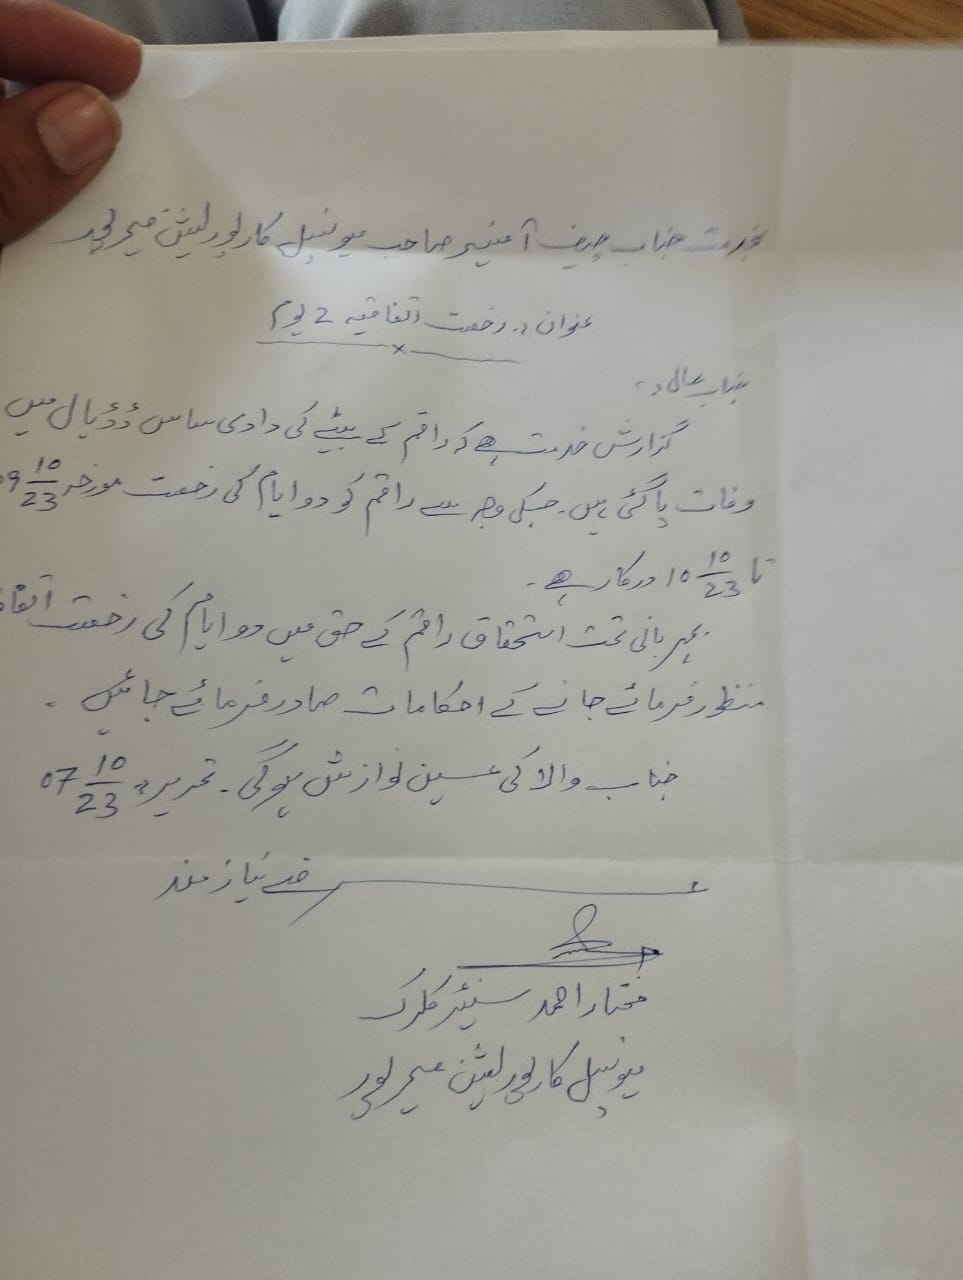 بخدمت جناب چیف آفیسر صاحب میونسپل کارپوریشن میرپور
عنوان :۔ رخصت اتفاقیہ 2 یوم
جناب عالی :۔
گزارش خدمت ہے کہ راقم کے بیٹے کی دادی ساس ڈڈیال میں
وفات پا گئی ہیں۔ جسکی وجہ سے راقم کو دو ایام کی رخصت مورخہ 09 10/23
تا 10 10/23 درکار ہے۔
بمہربانی تحت استحقاق راقم کے حق میں دو ایام کی رخصت
منظور فرمائے جانے کے احکامات صادر فرمائے جائیں۔
جناب والا کی عین نوازش ہوگی۔ تحریر :۔ 07 10/23
نیاز مند
مختار احمد سنیئر کلرک
میونسپل کارپوریشن میرپور